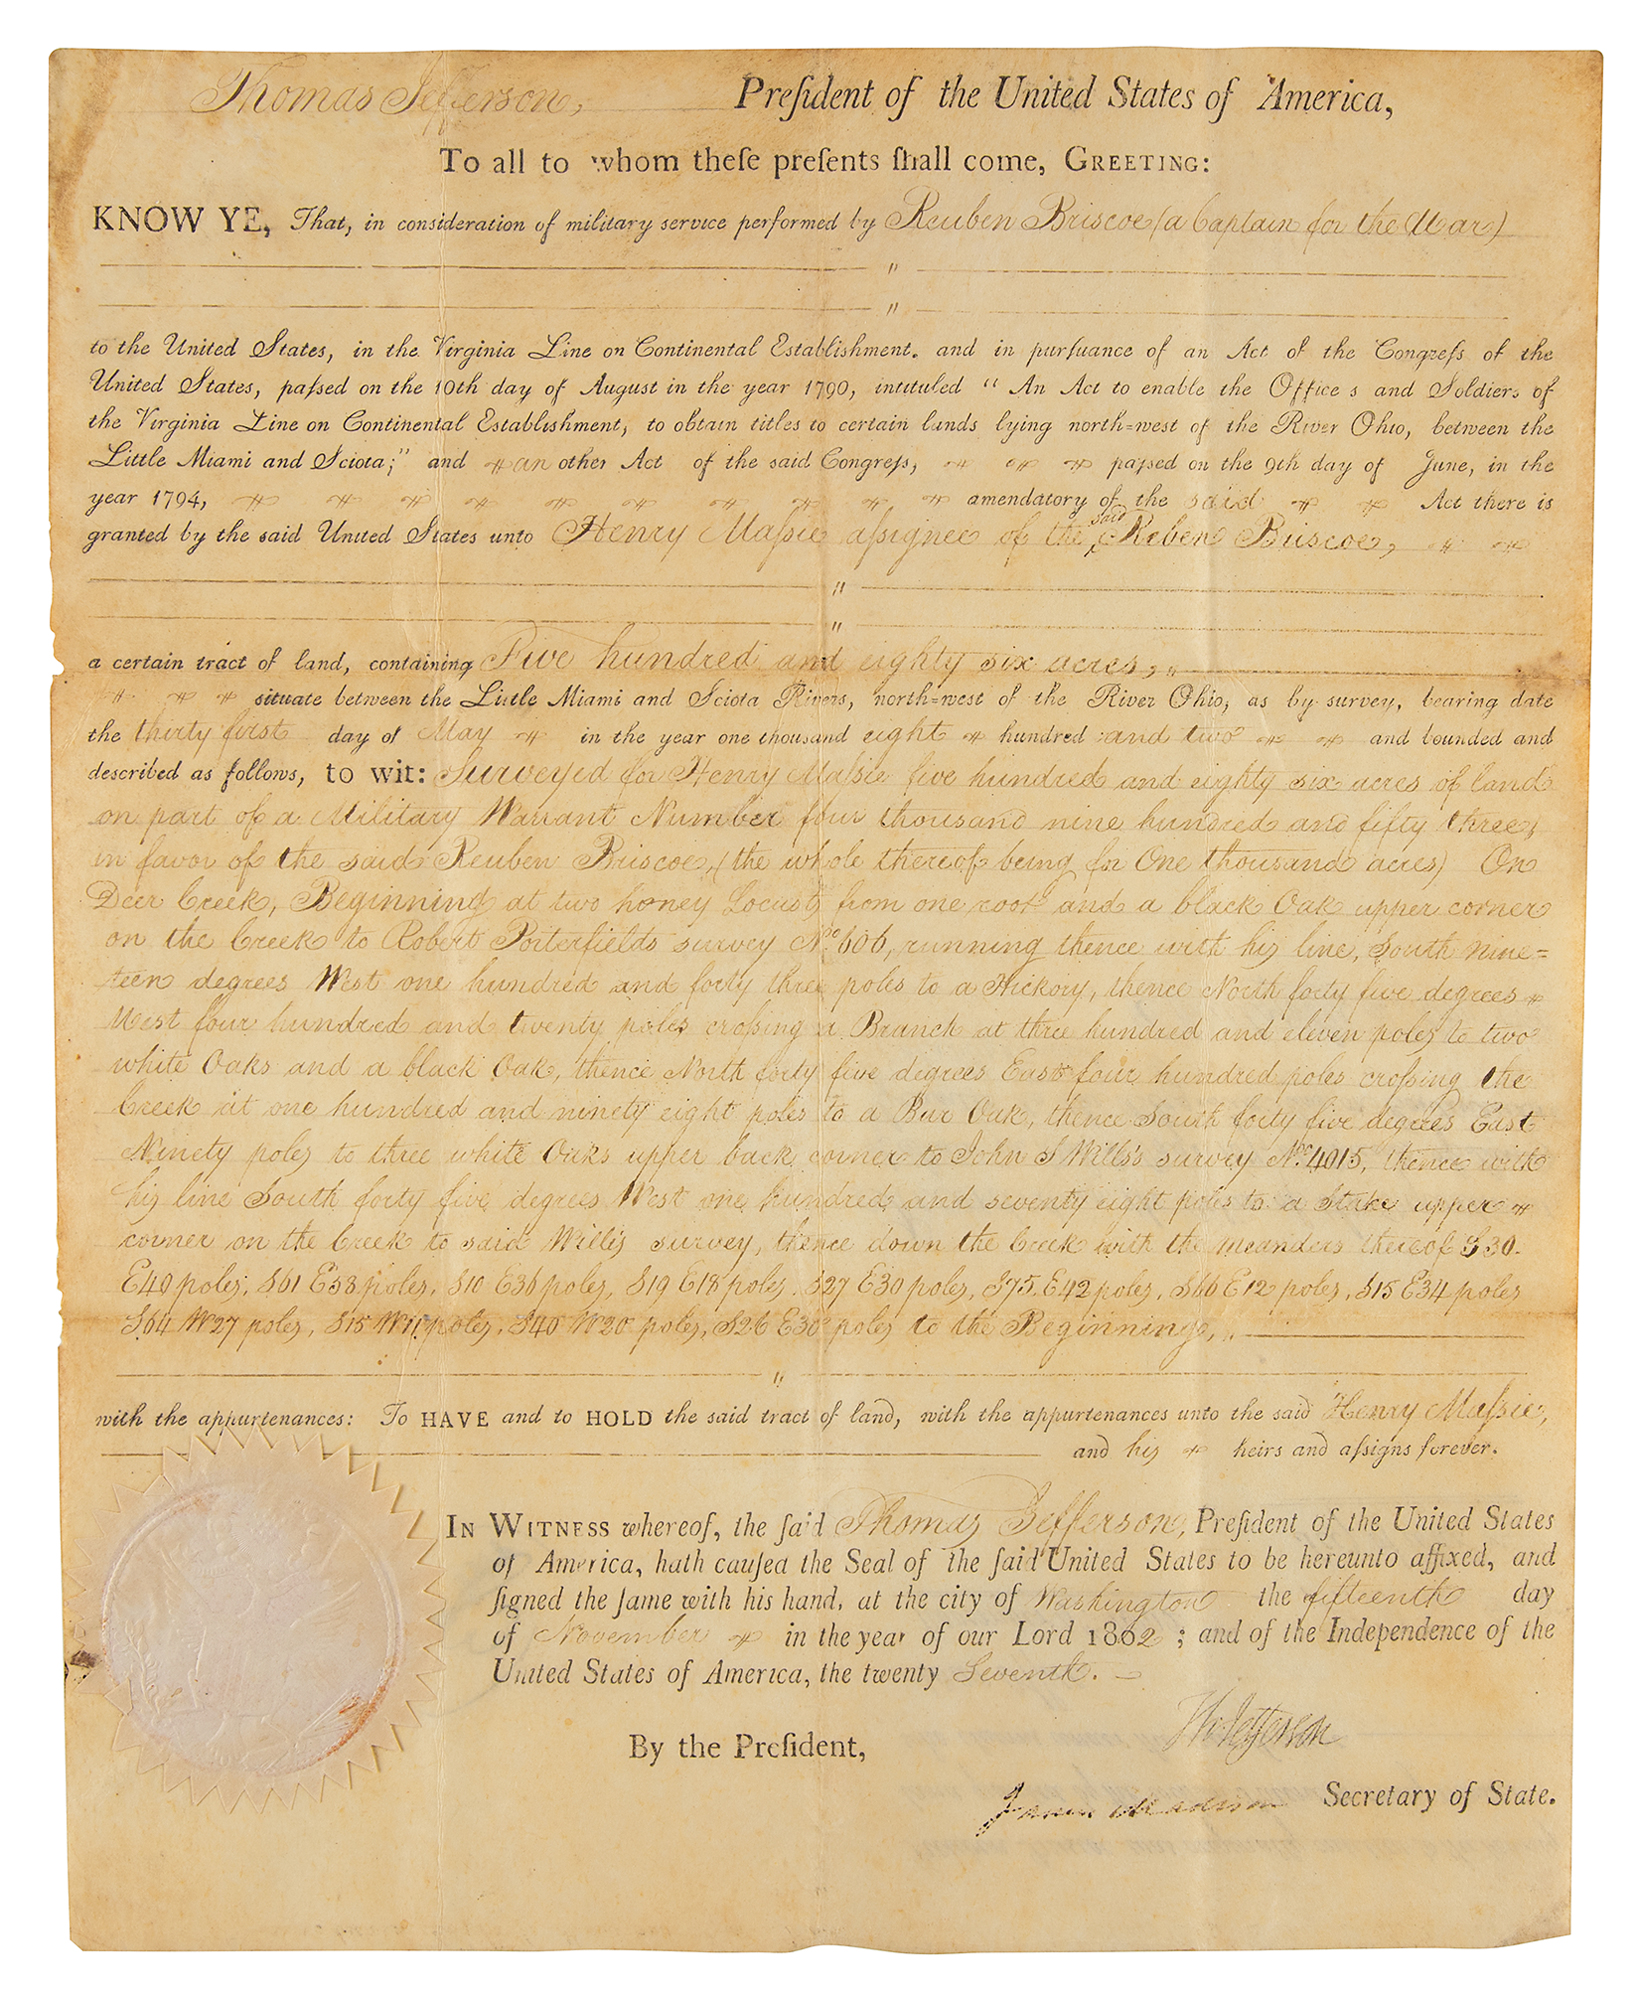 Thomas Jefferson, Preſident of the United States of America,
To all to whom theſe preſents ſhall come, GREETING:
KNOW YE, That, in consideration of military service performed by Reuben Briscoe (a Captain for the War)
"
"
to the United States, in the Virginia Line on Continental Establishment, and in purſuance of an Act of the Congreſs of the
United States, paſsed on the 10th day of August in the year 1790, intituled "An Act to enable the Office s and Soldiers of
the Virginia Line on Continental Establishment, to obtain titles to certain lands lying north=west of the River Ohio, between the
Little Miami and Sciota;" and an other Act of the said Congreſs, paſsed on the 9th day of June, in the
year 1794, amendatory of the said Act there is
granted by the said United States unto Henry Maſsie aſsignee of the said Reben Briscoe,
"
"
a certain tract of land, containing Five hundred and eighty six acres,
situate between the Little Miami and Sciota Rivers, north=west of the River Ohio, as by survey, bearing date
the thirty first day of May in the year one thousand eight hundred and two and bounded and
described as follows, to wit: Surveyed for Henry Maſsie five hundred and eighty six acres of land
on part of a Military Warrant Number four thousand nine hundred and fifty three,
in favor of the said Reuben Briscoe, (the whole thereof being for One thousand acres) On
Deer Creek, Beginning at two honey Locusts from one root and a black Oak upper corner
on the Creek to Robert Porterfields survey No. 606, running thence with his line, South nine=
teen degrees West one hundred and forty three poles to a Hickory, thence North forty five degrees
West four hundred and twenty poles croſsing a Branch at three hundred and eleven poles to two
white Oaks and a black Oak, thence North forty five degrees East four hundred poles croſsing the
Creek at one hundred and ninety eight poles to a Bur Oak, thence South forty five degrees East
Ninety poles to three white Oaks upper back corner to John S Wills's survey No. 4015, thence with
his line South forty five degrees West one hundred and seventy eight poles to a Stake upper
corner on the Creek to said Wills's survey, thence down the Creek with the meanders thereof S30.
E40 poles, S61 E58 poles, S10 E36 poles, S19 E18 poles, S27 E30 poles, S75. E42 poles, S66 E12 poles, S15 E34 poles
S64 W27 poles, S15 W11 poles, S40 W20 poles, S26 E30 poles to the Beginning,
"
with the appurtenances: To HAVE and to HOLD the said tract of land, with the appurtenances unto the said Henry Maſsie,
and his heirs and aſsigns forever.
IN WITNESS whereof, the ſaid Thomas Jefferson, Preſident of the United States
of America, hath cauſed the Seal of the ſaid United States to be hereunto affixed, and
ſigned the ſame with his hand, at the city of Washington the fifteenth day
of November in the year of our Lord 1802; and of the Independence of the
United States of America, the twenty Seventh.
Th: Jefferson
By the Preſident,
James Madison Secretary of State.